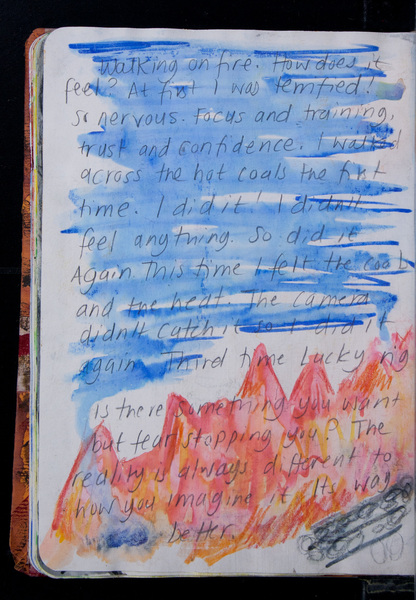 Walking on fire. How does it
feel? At first I was terrified!
So nervous. Focus and training,
trust and confidence. I walked
across the hot coals the first
time. I did it! I didn't
feel anything. So did it
Again. This time I felt the coals
and the heat. The camera
didn't catch it so I did it
again. Third time Lucky
Is there something you want
but fear stopping you? The
reality is always different to
how you imagine it. Its way
better.